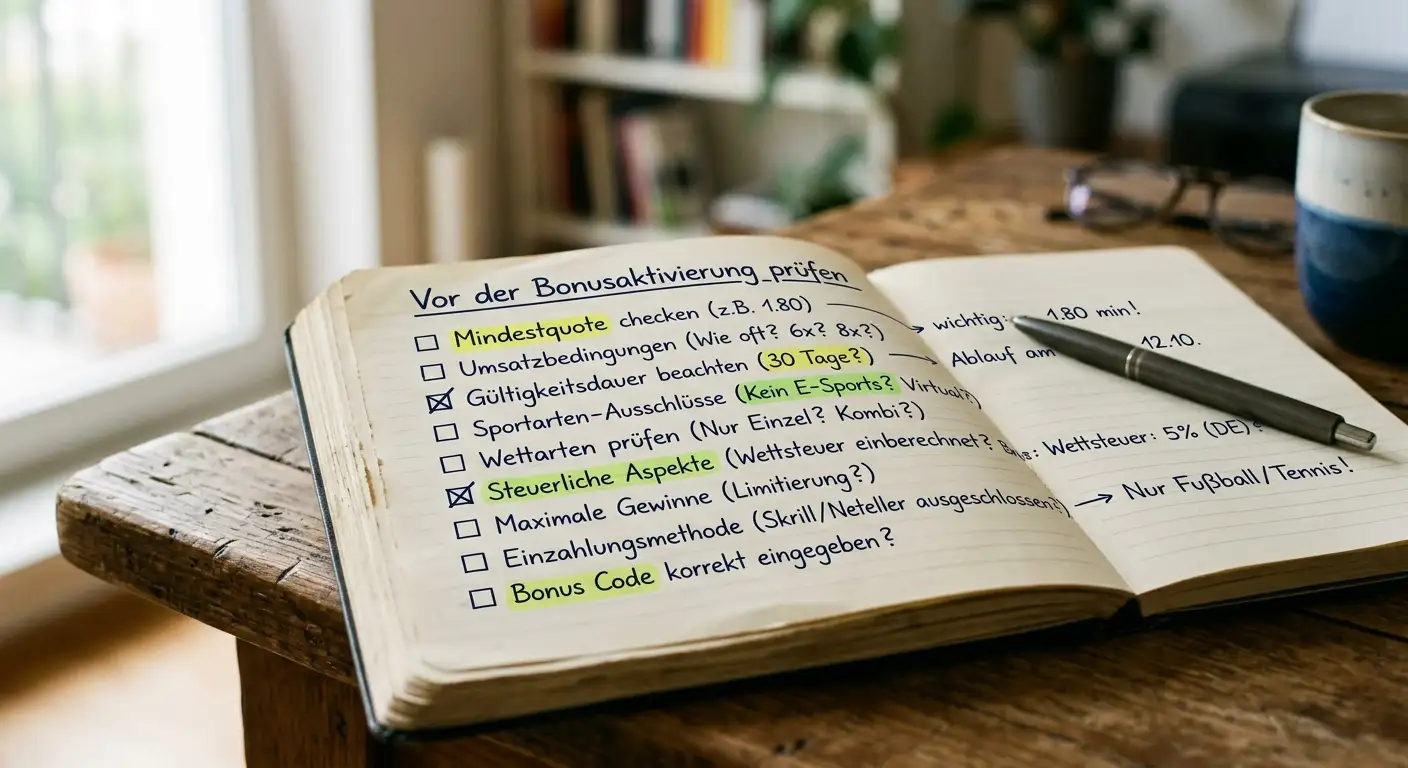 Vor der Bonusaktivierung prüfen
Mindestquote checken (z.B. 1.80)
Umsatzbedingungen (Wie oft? 6x? 8x?)
Gültigkeitsdauer beachten (30 Tage?)
Sportarten-Ausschlüsse (Kein E-Sports? Virtual?)
Wettarten prüfen (Nur Einzel? Kombi?)
Steuerliche Aspekte (Wettsteuer einberechnet?
Maximale Gewinne (Limitierung?)
Einzahlungsmethode (Skrill/Neteller ausgeschlossen?)
Bonus Code korrekt eingegeben?
wichtig: 1.80 min!
Ablauf am 12.10.
Wettsteuer: 5% (DE)
→ Nur Fußball/Tennis!